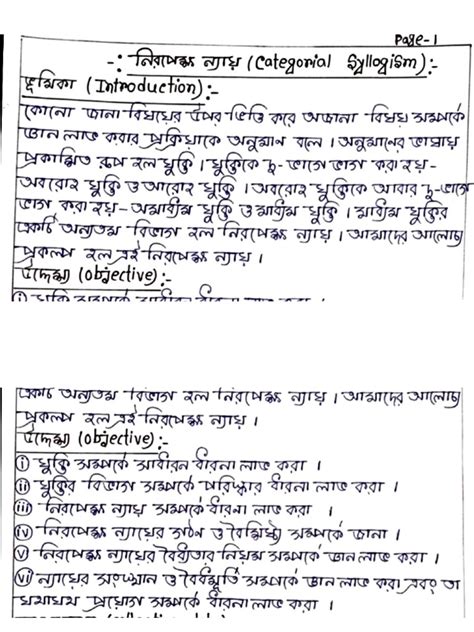 Page-1
-: নিরপেক্ষ ন্যায় (Categorial Syllogism):-
ভূমিকা (Introduction):-
কোনো জানা বিষয়ের উপর ভিত্তি করে অজানা বিষয় সম্পর্কে
জ্ঞান লাভ করার প্রক্রিয়াকে অনুমান বলে। অনুমানের ভাষায়
প্রকাশিত রূপ হল যুক্তি। যুক্তিকে দু-ভাগে ভাগ করা হয়-
অবরোহ যুক্তি ও আরোহ যুক্তি। অবরোহ যুক্তিকে আবার দু-ভাগে
ভাগ করা হয়- অমাধ্যম যুক্তি ও মাধ্যম যুক্তি। মাধ্যম যুক্তির
একটি অন্যতম বিভাগ হল নিরপেক্ষ ন্যায়। আমাদের আলোচ্য
প্রকল্প হল এই নিরপেক্ষ ন্যায়।
উদ্দেশ্য (objective):-
একটি অন্যতম বিভাগ হল নিরপেক্ষ ন্যায়। আমাদের আলোচ্য
প্রকল্প হল এই নিরপেক্ষ ন্যায়।
উদ্দেশ্য (objective):-
(i) যুক্তি সম্পর্কে সাধারন ধারনা লাভ করা।
(ii) যুক্তির বিভাগ সম্পর্কে পরিষ্কার ধারনা লাভ করা।
(iii) নিরপেক্ষ ন্যায় সম্পর্কে ধারনা লাভ করা।
(iv) নিরপেক্ষ ন্যায়ের গঠন ও বৈশিষ্ট্য সম্পর্কে জানা।
(v) নিরপেক্ষ ন্যায়ের বৈধতার নিয়ম সম্পর্কে জ্ঞান লাভ করা।
(vi) ন্যায়ের সংস্থান ও বৈধমূর্তি সম্পর্কে জ্ঞান লাভ করা এবং তা
যথাযথ প্রয়োগ সম্পর্কে ধারনা লাভ করা।